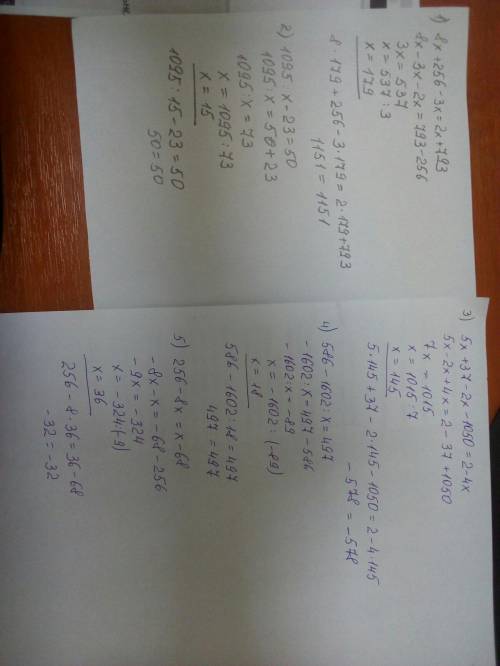 1) 8x+256-3x=2x+793
8x-3x-2x=793-256
3x=537
x=537:3
x=179
8·179+256-3·179=2·179+793
1151=1151
2) 1095:x-23=50
1095:x=50+23
1095:x=73
x=1095:73
x=15
1095:15-23=50
50=50
3) 5x+37-2x-1050=2-4x
5x-2x+4x=2-37+1050
7x=1015
x=1015:7
x=145
5·145+37-2·145-1050=2-4·145
-578=-578
4) 586-1602:x=497
-1602:x=497-586
-1602:x=-89
x=-1602:(-89)
x=18
586-1602:18=497
497=497
5) 256-8x=x-68
-8x-x=-68-256
-9x=-324
x=-324(-9)
x=36
256-8·36=36-68
-32=-32